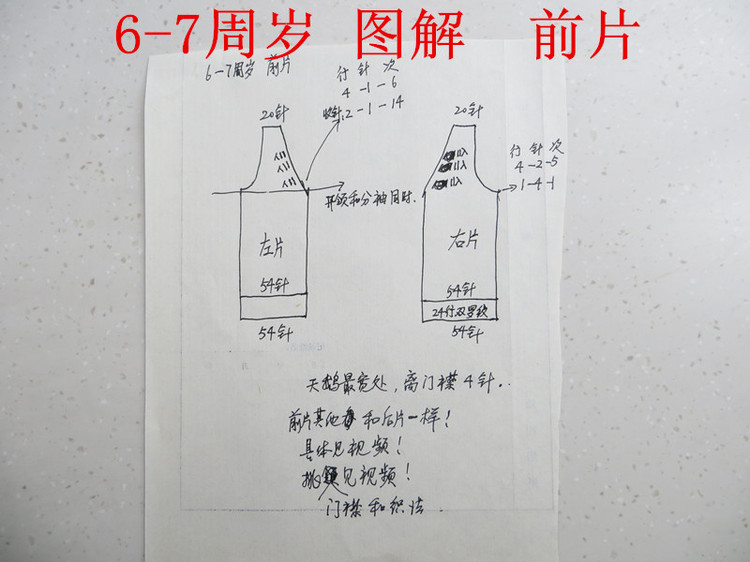 6-7周岁 图解 前片
6-7周岁 前片
行 针 次
4 -1 -6
收针:2 -1 -14
20针
左片
54针
54针
开领和分袖同时.
20针
行 针 次
4 -2 -5
1 -4 -1
右片
54针
24行双罗纹
54针
天鹅最宽处,离门襟4针..
前片其他 和后片一样!
具体见视频!
挑 见视频!
门襟和织法.